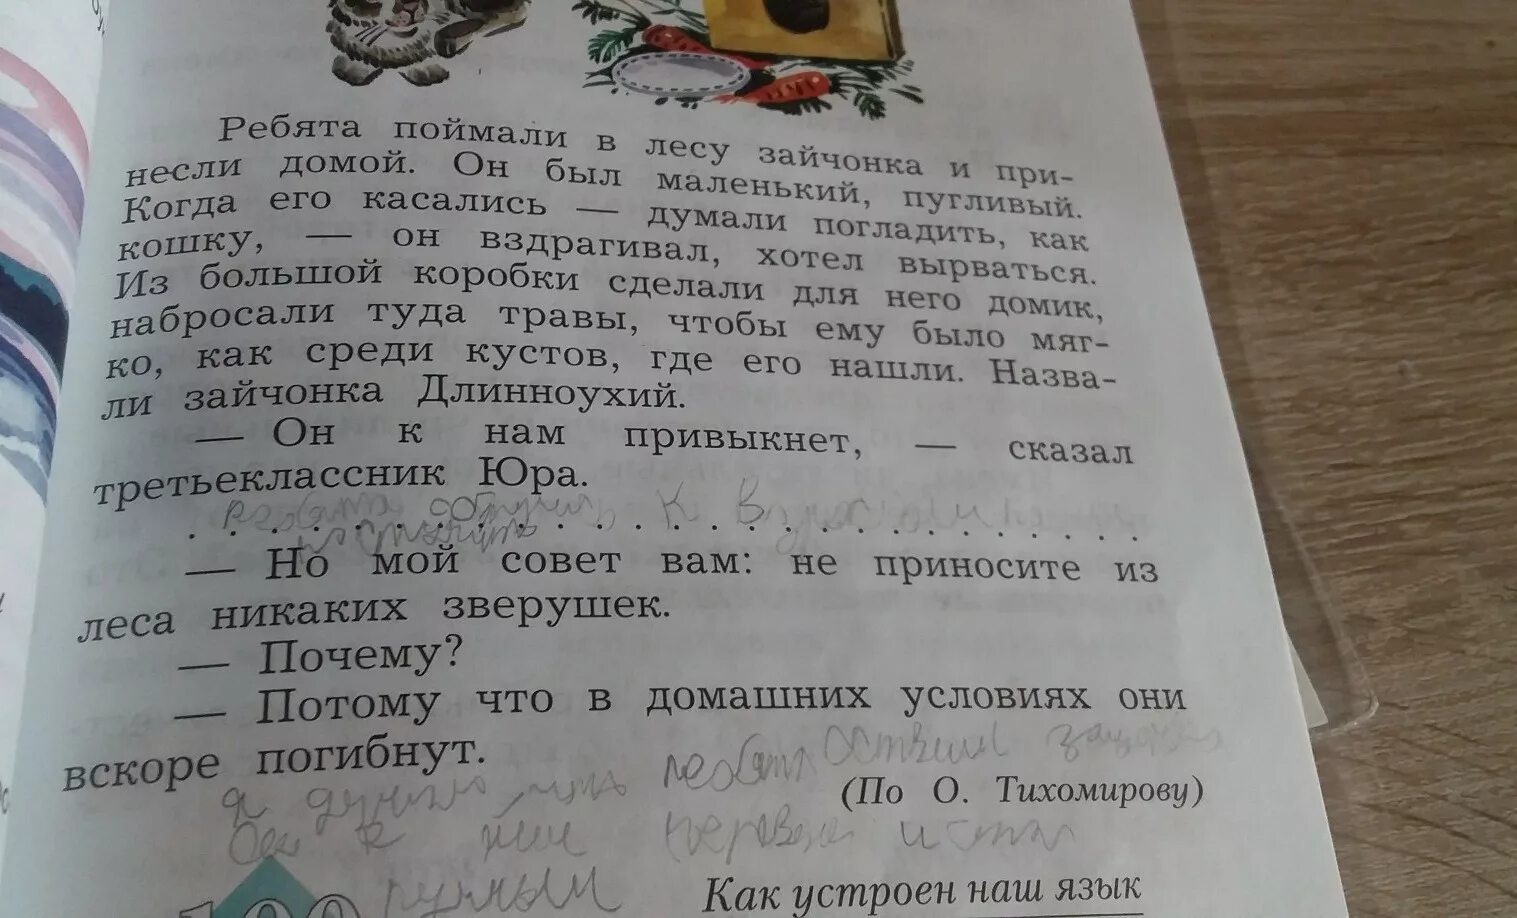 Ребята поймали в лесу зайчонка и при-
несли домой. Он был маленький, пугливый.
Когда его касались — думали погладить, как
кошку, — он вздрагивал, хотел вырваться.
Из большой коробки сделали для него домик,
набросали туда травы, чтобы ему было мяг-
ко, как среди кустов, где его нашли. Назва-
ли зайчонка Длинноухий.
— Он к нам привыкнет, — сказал
третьеклассник Юра.
ребята к
. . . . . . . . . . . . . . . . . . . . . . . . .
— Но мой совет вам: не приносите из
леса никаких зверушек.
— Почему?
— Потому что в домашних условиях они
вскоре погибнут.
я думаю ребята
(По О. Тихомирову)
к ним и стал
ручным
Как устроен наш язык